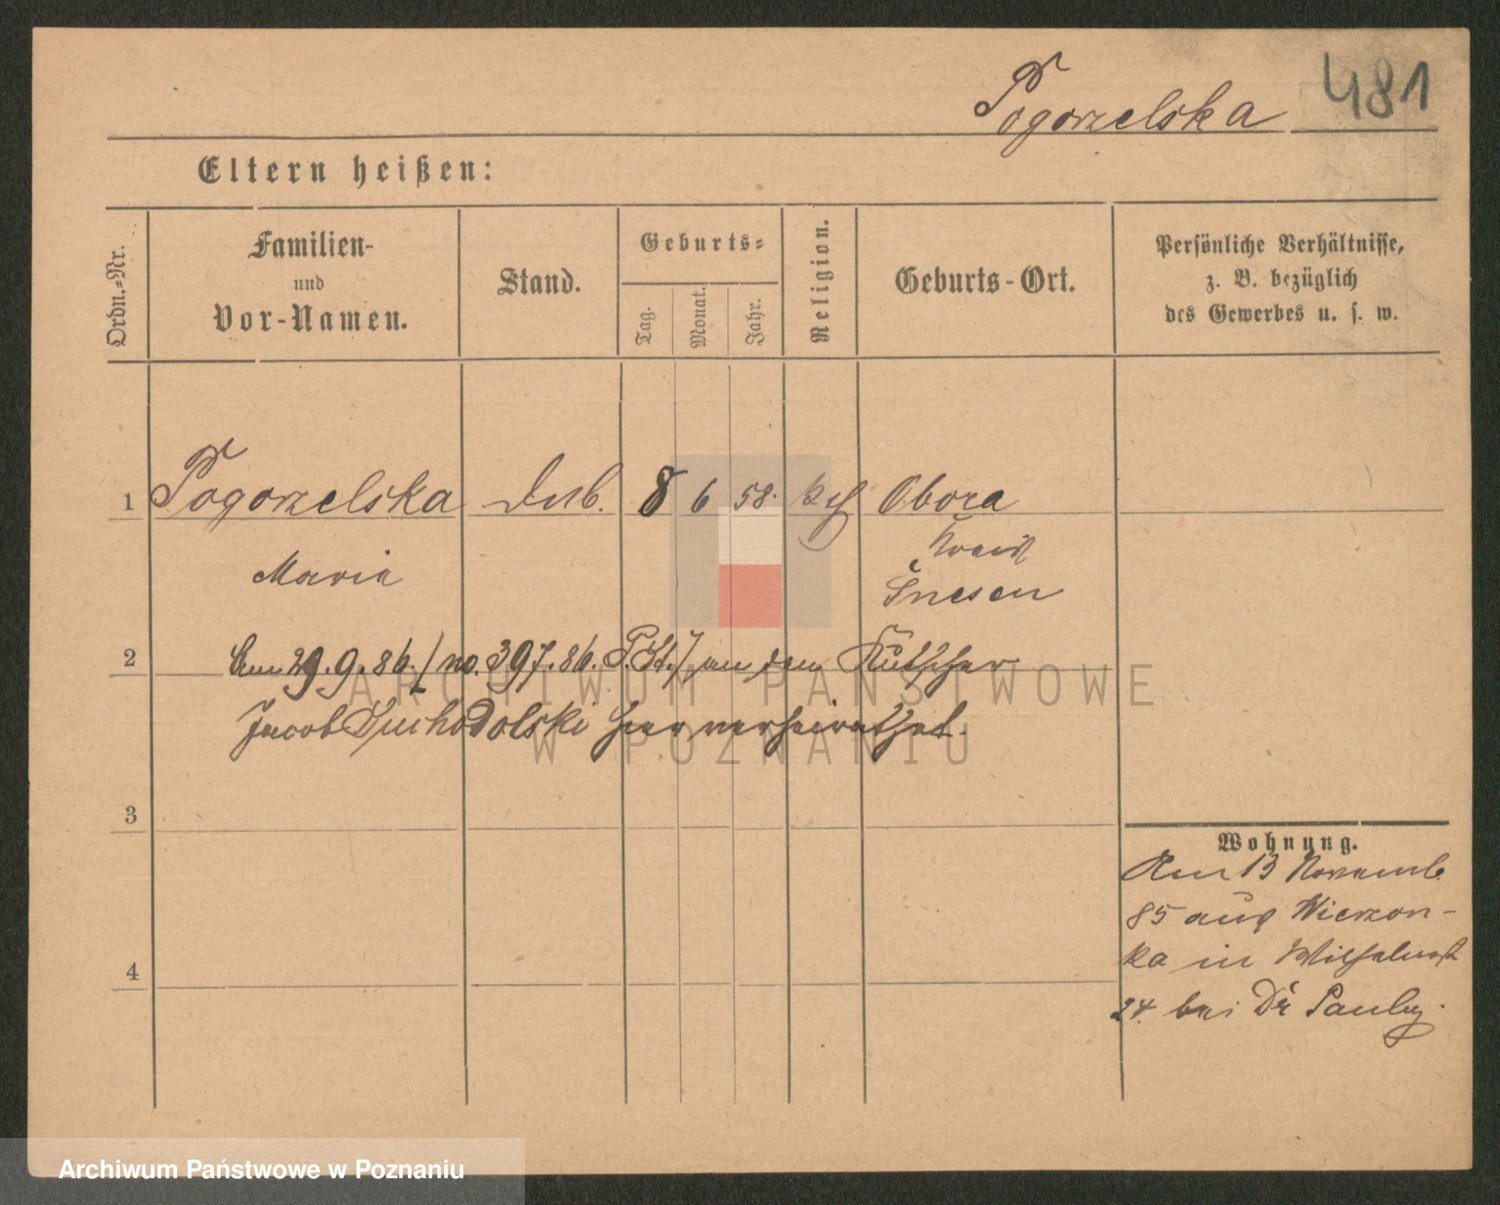 Pogorzelska 481
Eltern heißen:
Ordn.-Nr.
Familien-
und
Vor-Namen.
Stand.
Geburts-
Tag.
Monat.
Jahr.
Religion.
Geburts-Ort.
Persönliche Verhältnisse,
z. B. bezüglich
des Gewerbes u. s. w.
1 Pogorzelska 8 6 58. kath Obora
Kreis
Maria
Gnesen
2 Am 29.9.86. (no. 397.86. P.St.) an den Kutscher
Jacob Suchodolski hier verheirathet.
3
4
Wohnung.
Am 13 Novemb.
85 aus Wierzon-
ka in Wilhelmst
24. bei Dr Pauly.
ARCHIWUM PAŃSTWOWE
W POZNANIU
Archiwum Państwowe w Poznaniu